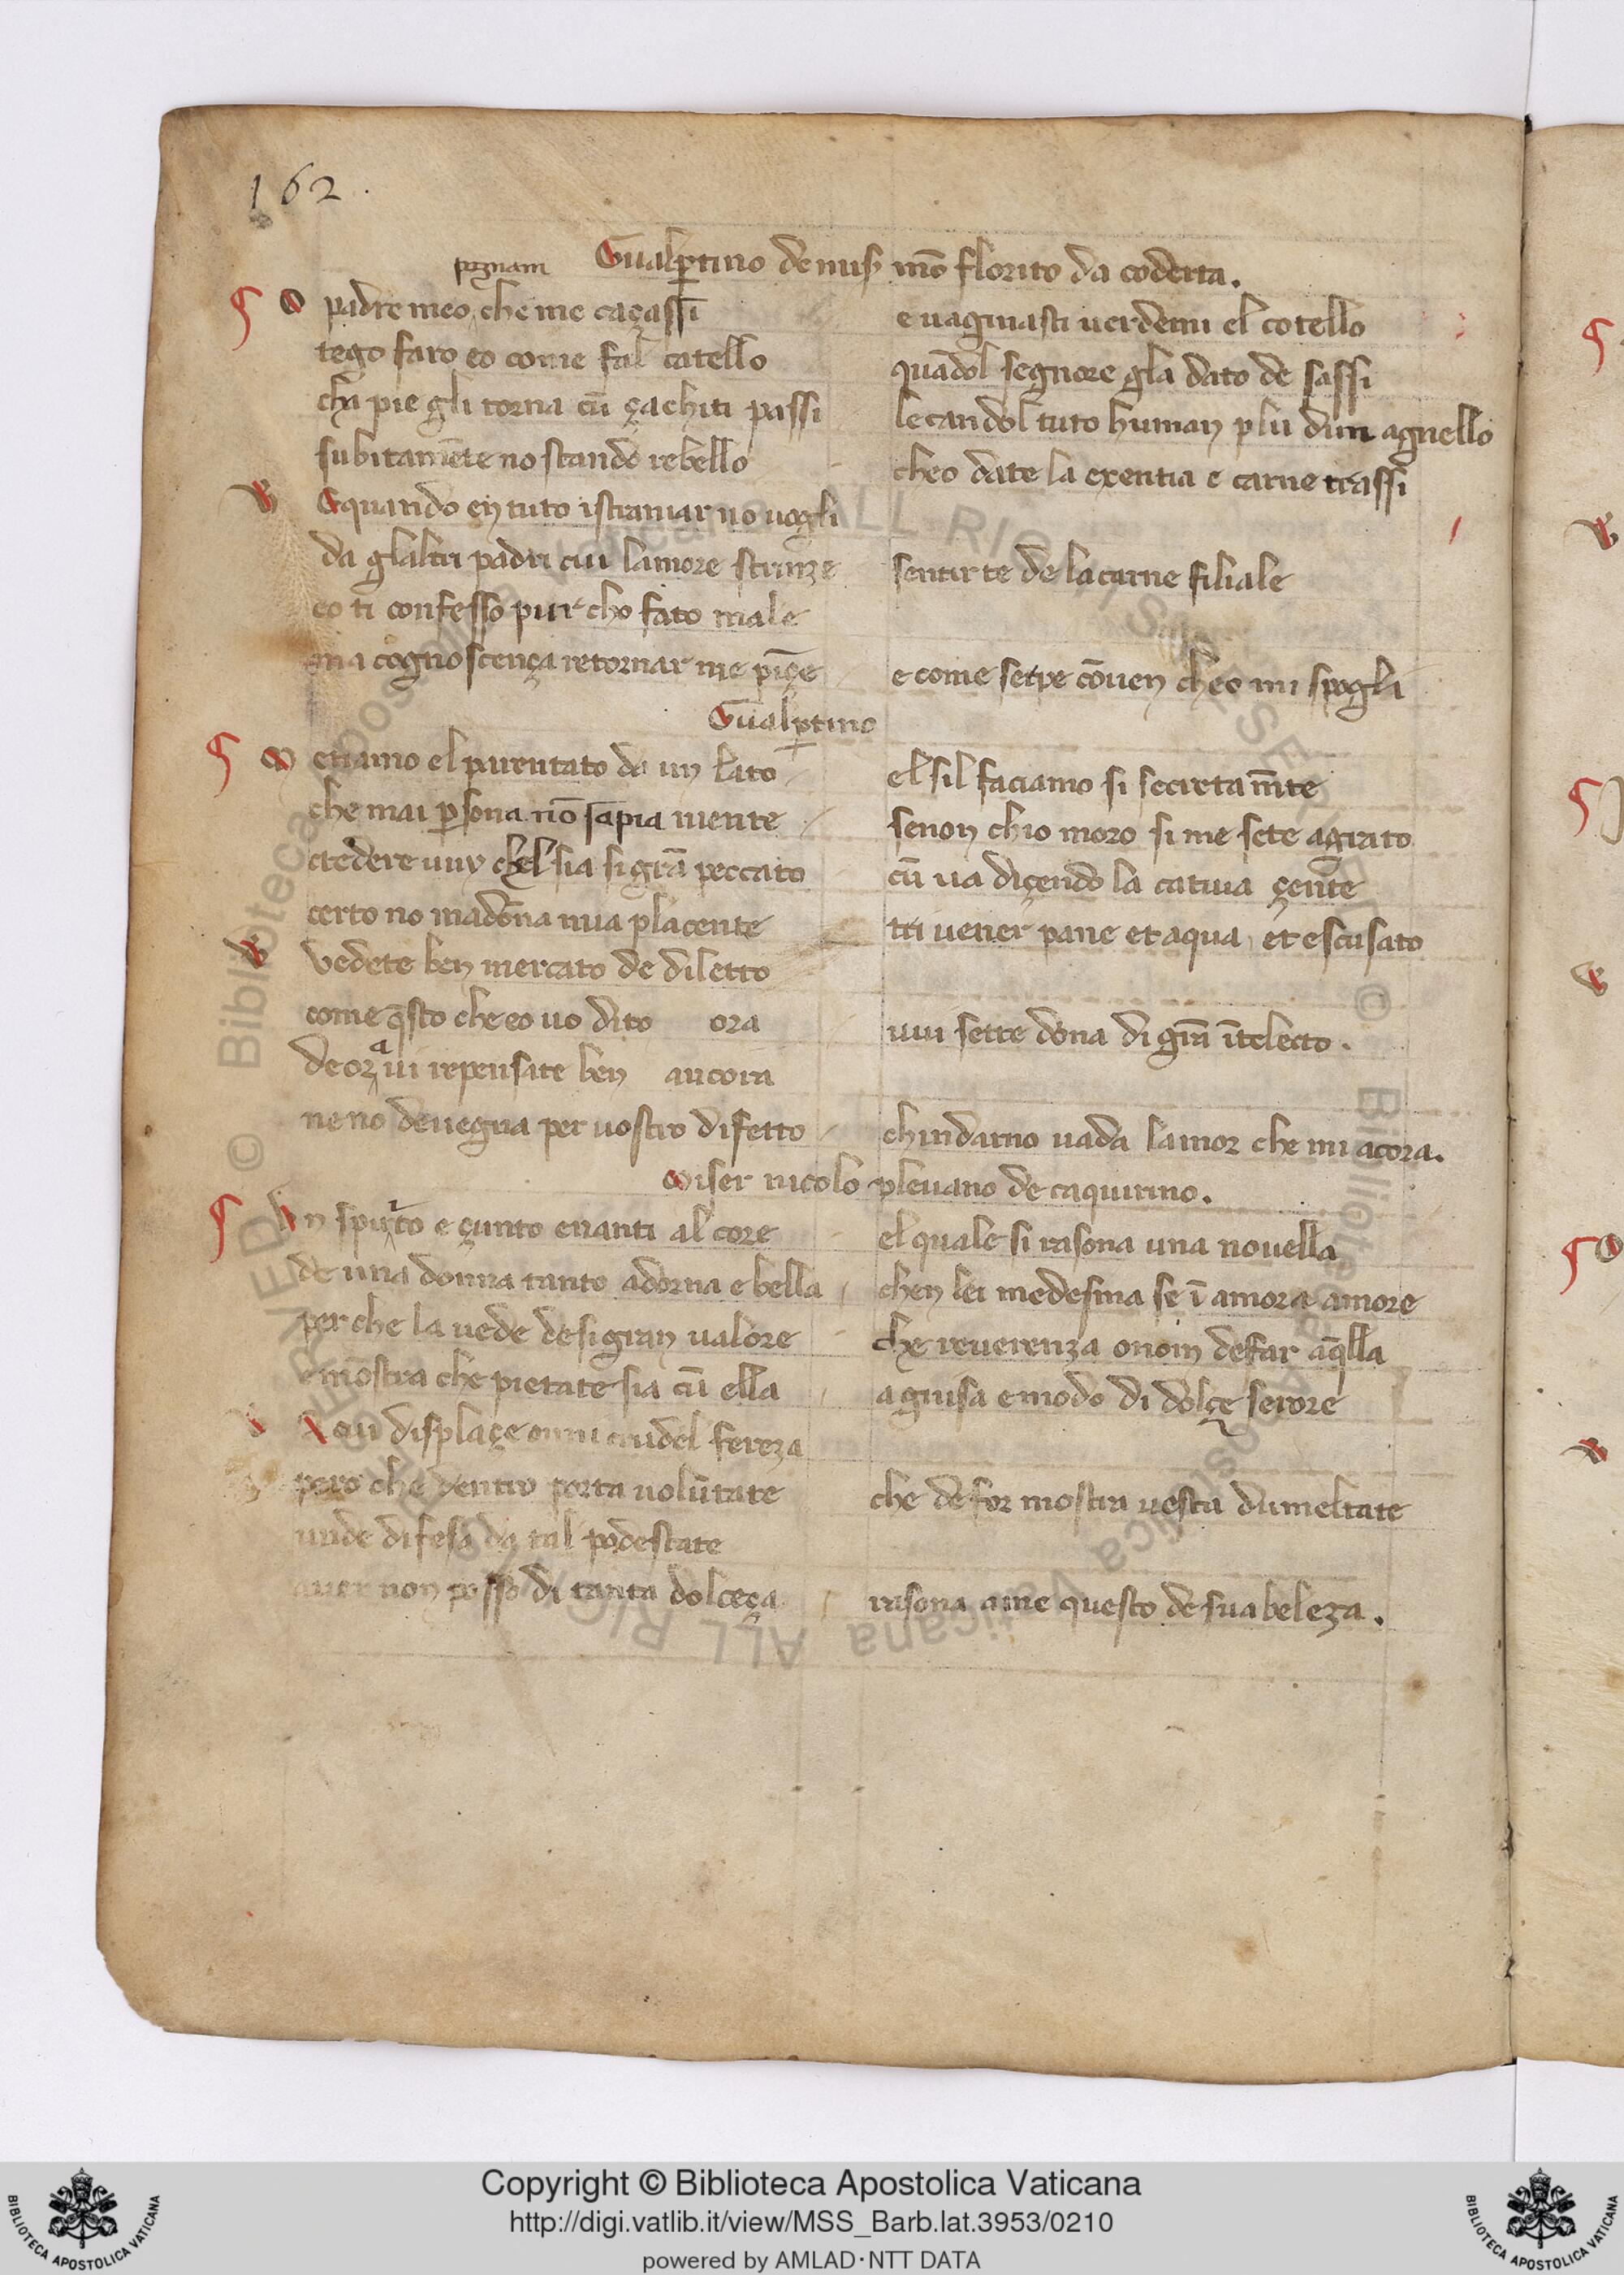 162.
Gualp̱tino de mis̱ mōte florito da coderta.
pegnam
O padre meo che me caçassi e uaginasti uerdemi el cotello
tego faro eo come fal catello quādol segnore gla dato de sassi
cha pie gli torna cū çachiti passi lecandol tuto human plu dun agnello
subitamēte no stando rebello cheo date la exentia e carne trassi
E quando en tuto istraniar no uogli
da glaltri padri cui lamore strinze sentirte de la carne filiale
eo ti confesso pur cho fato male
ma cognoscença retornar me pīçe e come serpe cōuen cheo mi spogli
Gualp̱tino
Metiamo el parentato da un lato el sil faciamo si secretam̄te
che mai p̱sona nō sapia niente senon chio moro si me sete agrato
credere uuy chel sia si grā peccato cū ua diçendo la catiua çente
certo no madōna mia placente tri uener pane et aqua et escusato
Vedete ben mercato de diletto
come q̄sto che eo uo dito ora uui sette dōna di grā ītelecto.
deora ui repensate ben ancora
ne no deuegna per uostro difetto chindarno uada lamor che mi acora.
Miser nicolo pleuano de caquirino.
Un spirito e çunto enanti al core el quale si rasona una nouella
de una donna tanto adorna e bella chen lei medesma se ī amora amore
per che la uede de si gran ualore che reuerenza onoin de far aq̄lla
e mōstra che pietate sia cū ella a guisa e modo di dolçe serore
A cui displaçe onni crudel fereza
pero che dentro porta uolūtate che de for mostra uesta dumeltate
unde difesa da tal podestate
auer non posso di tanta dolceça rasona a me questo de sua beleza.
Copyright © Biblioteca Apostolica Vaticana
http://digi.vatlib.it/view/MSS_Barb.lat.3953/0210
powered by AMLAD·NTT DATA
BIBLIOTECA APOSTOLICA VATICANA
BIBLIOTECA APOSTOLICA VATICANA